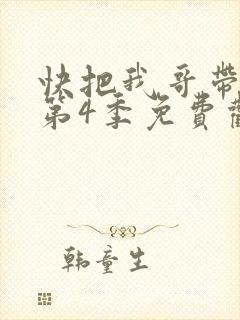 快把我哥带
第4季免費觀
韩童生